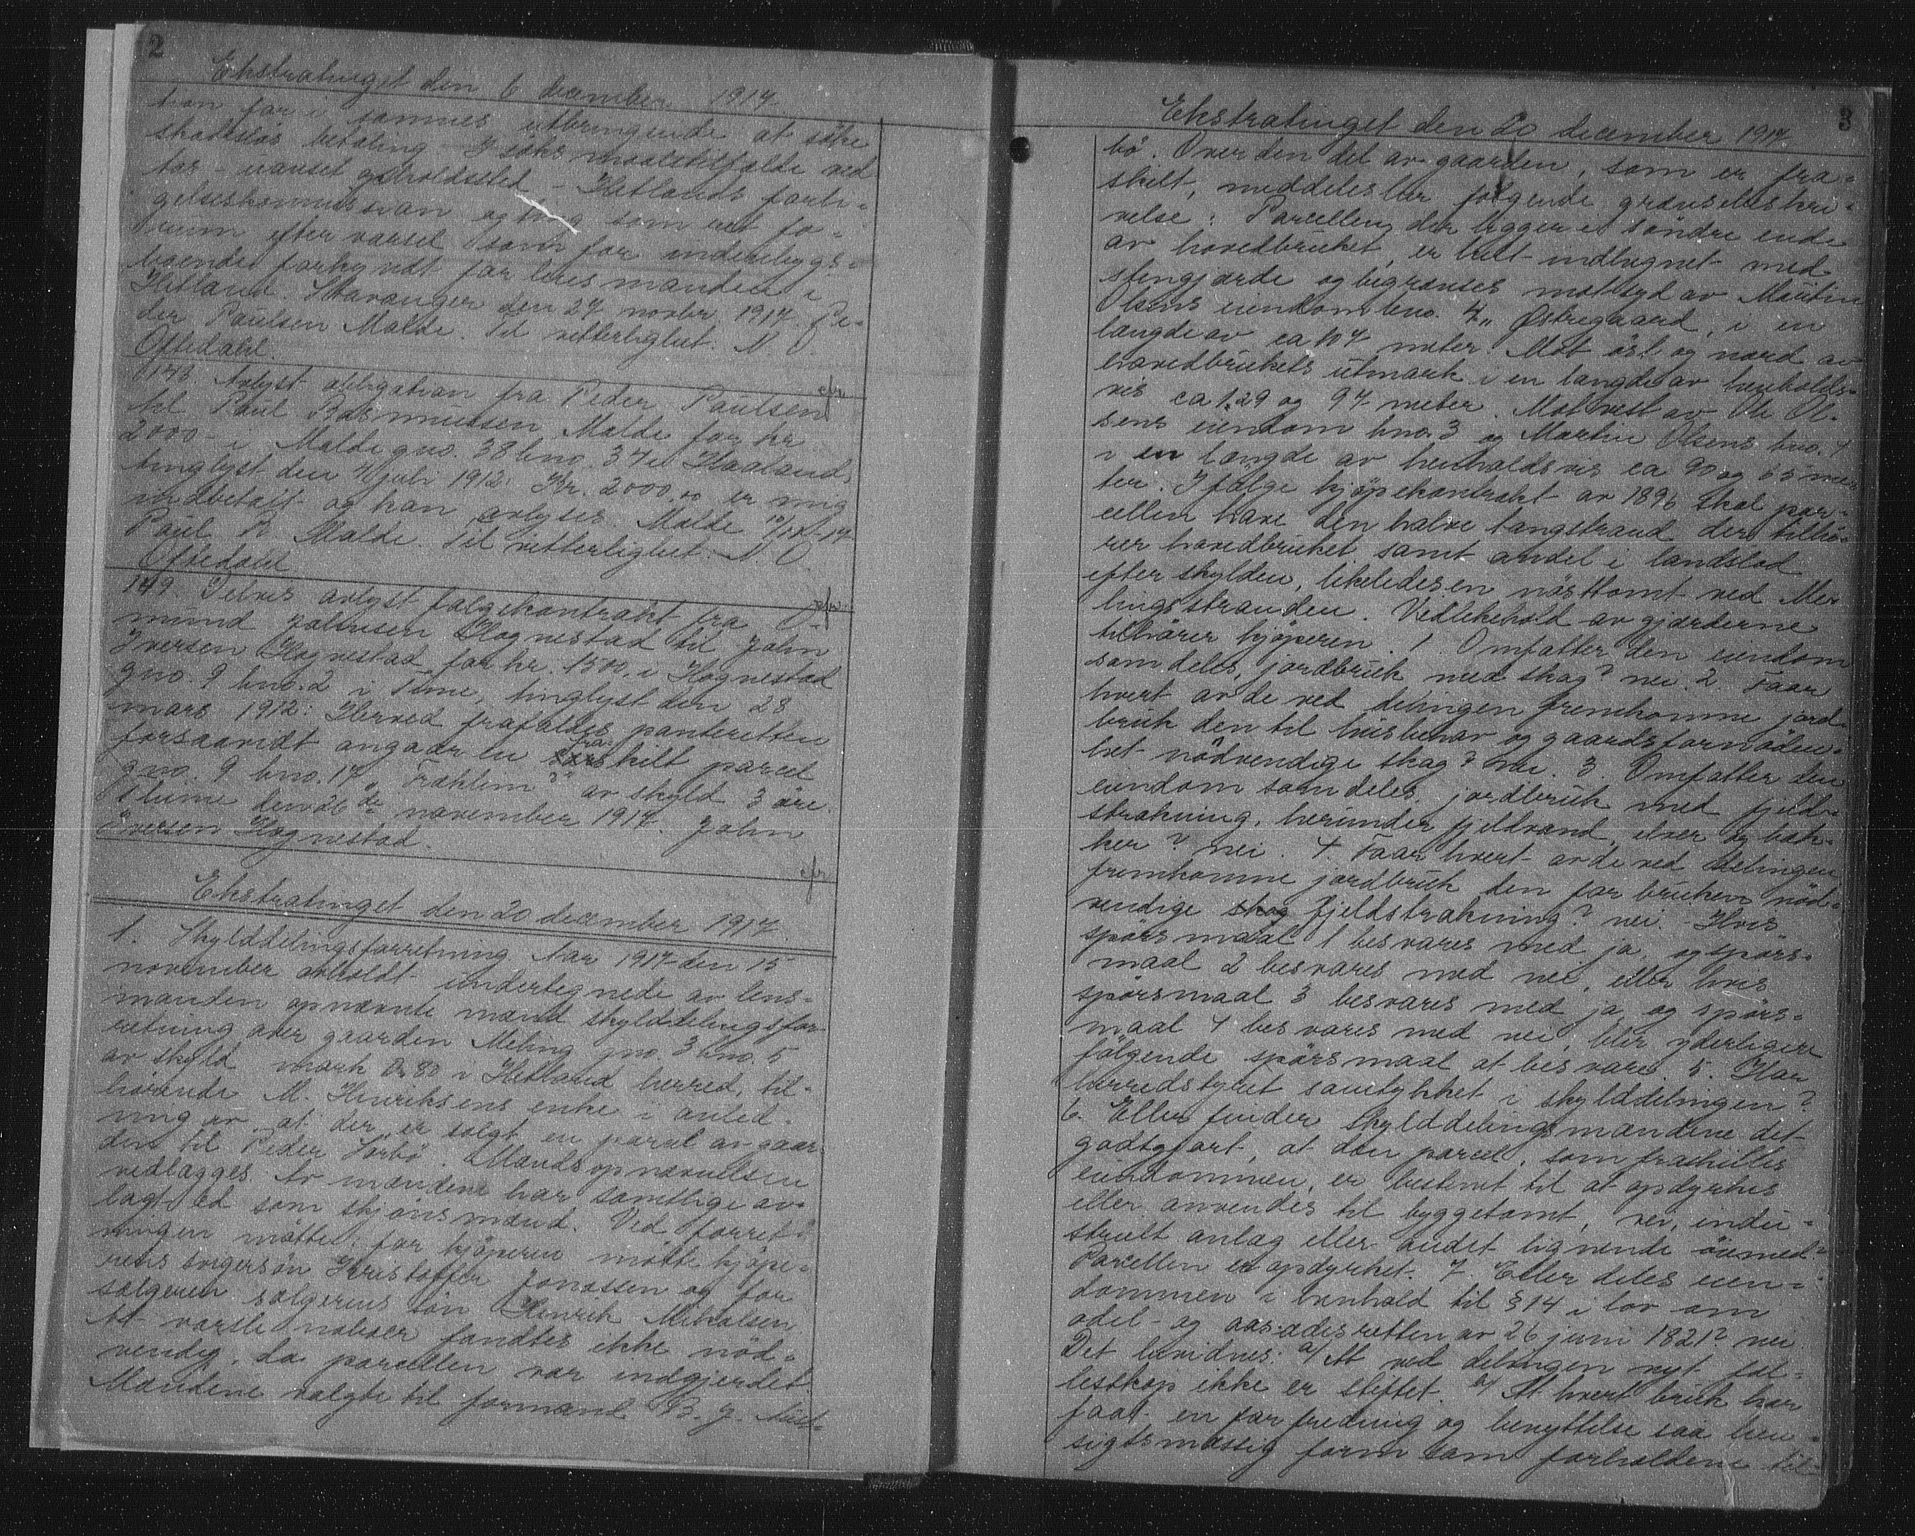 2
Ekstratinget den 6 december 1917.
tion for i sammes utbringende at söke
skadeslös betaling. I söksmaalstilfælde ved
tar - uanset opholdssted - Hetlands forli-
gelseskommission og ting som ret fo-
rum efter varsel som for indenbygs-
boende forkyndt for lensmanden i
Hetland. Stavanger den 27 novbr. 1917. Pe-
der Paulsen Malde. Til vitterlighet: N. O.
Oftedahl.
148. Avlyst obligation fra Peder Paulsen
til Paul Rasmussen Malde for kr.
2000 - i Malde gno. 38 bno. 37 i Haaland,
tinglyst den 4 juli 1912: Kr. 2000.00 er mig
indbetalt og kan avlyses. Malde
Paul R. Malde. Til vitterlighet: N. O.
Oftedahl
149. Delvis avlyst følgekontrakt fra O-
mund Johnsen Hognestad til John
Iversen Hognestad for kr. 1500, i Hognestad
gno. 9 bno. 2 i Time, tinglyst den 28
mars 1912: Herved frafaldes panteretten
forsaavidt angaar en fraskilt parcel
gno. 9 bno. 17 „Træhlim" av skyld 3 øre.
Thime den 26de november 1917. John
Iversen Hognestad.
Ekstratinget den 20 december 1917.
1. Skylddelingsforretning Aar 1917 den 15
november avholdt undertegnede av lens-
manden opnævnte mænd skylddelingsfor-
retning over gaarden Meling gno. 3 bno. 5
av skyld mark 0.80 i Hetland herred, til-
hørende M. Henriksens enke i anled-
ning av, at der er solgt en parcel av gaar
den til Peder Horbö. Mandsopnævnelsen
vedlægges. Av mændene har samtlige av-
lagt ed som skjönsmænd. Ved forret-
ningen mötte: for kjöperen mötte kjöpe-
rens svigersön Kristoffer Jonassen og for
sælgeren sælgerens sön Henrik Mikalsen.
At varsle naboer fandtes ikke nöd-
vendig, da parcellen var indgjerdet.
Mændene valgte til formand B. G. Aust-
3
Ekstratinget den 20 december 1917
bö. Over den del av gaarden, som er fra-
skilt, meddeles her følgende grænsebeskri-
velse: Parcellen, der ligger i söndre ende
av hovedbruket, er helt indhegnet med
stengjærde og begrænses mot syd av Martin
Olsens eiendom bno. 4 „ Østregaard, i en
længde av ca 107 meter. Mot öst og nord av
hovedbrukets utmark i en længde av henholds-
vis ca 129 og 97 meter. Mot vest av Ole Ol-
sens eiendom bno. 3 og Martin Olsens bno. 4
i en længde av henholdsvis ca 90 og 65 me-
ter. Ifölge kjöpekontrakt av 1896 skal par-
cellen have den halve tangstrand der tilhö-
rer hovedbruket samt andel i landstöd
efter skylden, likeledes en nösttomt ved Me-
lingsstranden. Vedlikehold av gjærderne
tilhörer kjöperen. 1. Omfatter den eiendom
som deles, jordbruk med skog? nei. 2. Faar
hvert av de ved delingen fremkomne jord-
bruk den til husbehov og gaardsfornöden-
het nödvendige skog? nei. 3. Omfatter den
eiendom som deles, jordbruk med fjeld-
strækning, herunder fjeldvand, elver og bæk-
ker? nei. 4. Faar hvert av de ved delingen
fremkomne jordbruk den for bruken nöd-
vendige skog fjeldstrækning? nei. - Hvis
spörsmaal 1 besvares med ja, og spörs-
maal 2 besvares med nei, eller hvis
spörsmaal 3 besvares med ja og spörs-
maal 4 besvares med nei, blir yderligere
fölgende spörsmaal at besvare. 5. Har
herredstyret samtykket i skylddelingen?
6. Eller finder skylddelingsmændene det
godtgjort, at den parcel, som fraskilles
eiendommen, er bestemt til at opdyrkes
eller anvendes til byggetomt, vei, indu-
strielt anlæg eller andet lignende öiemed -
Parcellen er opdyrket. 7. Eller deles eien-
dommen i henhold til § 14 i lov om
odel- og aasædesretten av 26 juni 1821? nei
Det bevidnes: a/ At ved delingen nyt fæl-
lesskap ikke er stiftet. At hvert bruk har
faat en for fredning og benyttelse saa hen-
sigtsmæssig form som forholdene til-